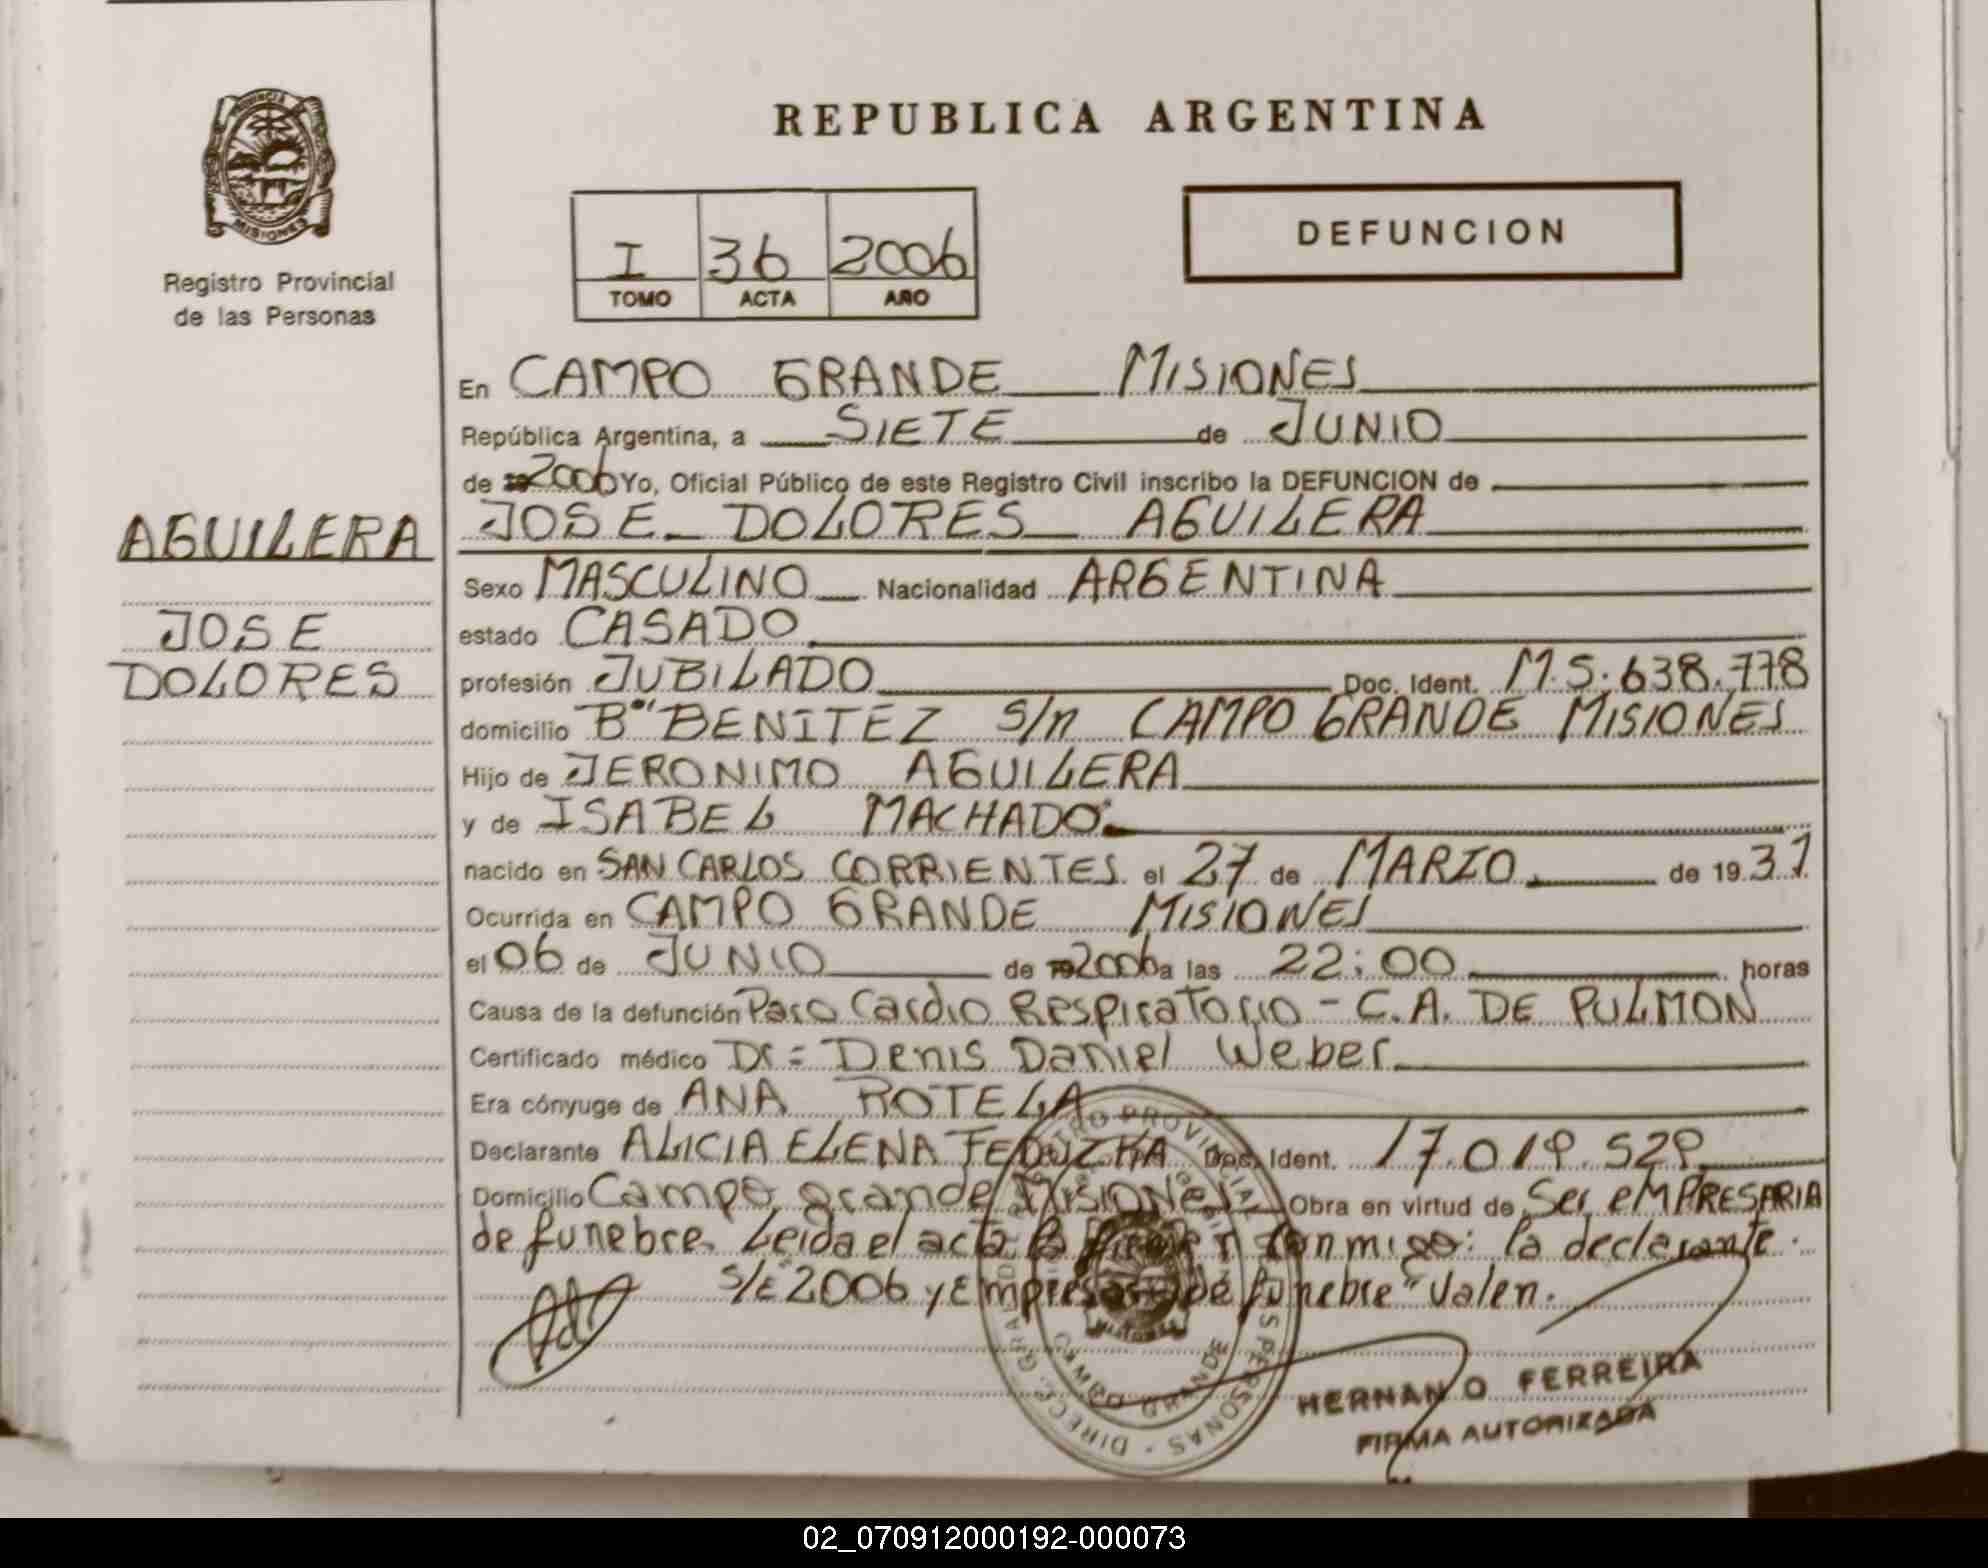 PROVINCIA
MISIONES
Registro Provincial
de las Personas
REPUBLICA ARGENTINA
I 36 2006
TOMO ACTA AÑO
DEFUNCION
En CAMPO GRANDE MISIONES
República Argentina, a SIETE de JUNIO
de 2006 Yo, Oficial Público de este Registro Civil inscribo la DEFUNCION de
AGUILERA
JOSE DOLORES
JOSE DOLORES AGUILERA
Sexo MASCULINO Nacionalidad ARGENTINA
estado CASADO
profesión JUBILADO Doc. Ident. M.5.638.778
domicilio B° BENITEZ S/n CAMPO GRANDE MISIONES
Hijo de JERONIMO AGUILERA
y de ISABEL MACHADO.
nacido en SAN CARLOS CORRIENTES el 27 de MARZO de 1931
Ocurrida en CAMPO GRANDE MISIONES
el 06 de JUNIO de 2006 a las 22:00 horas
Causa de la defunción Paro Cardio Respiratorio - C.A. DE PULMON
Certificado médico Dr = Denis Daniel Weber
Era cónyuge de ANA ROTELA
Declarante ALICIA ELENA Doc. Ident. 17.019.529
Domicilio Campo Grande MISIONES Obra en virtud de Ser EMPRESARIA
de funebre. Leida el acta la firman conmigo: la declarante.
S/E 2006 y Empresaria de funebre "Valen.
CAMPO GRANDE
HERNAN O FERREIRA
FIRMA AUTORIZADA
02_070912000192-000073